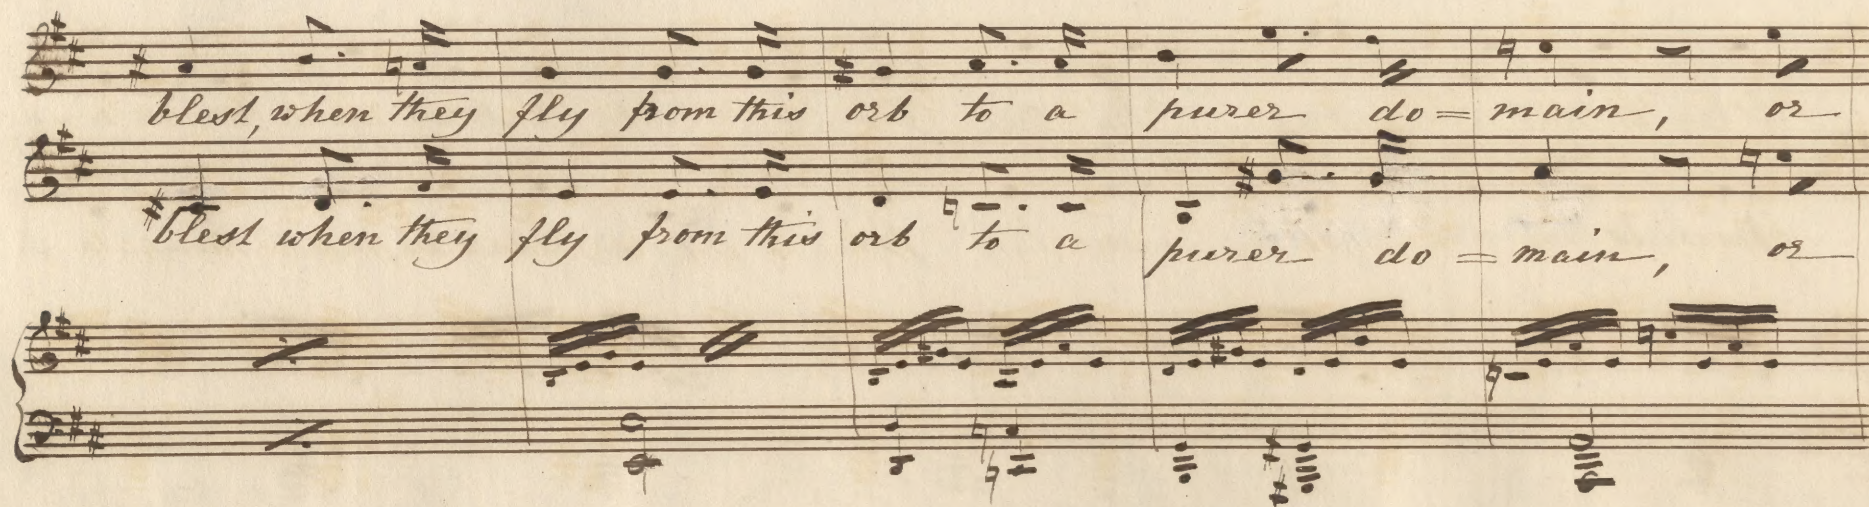 blest, when they fly from this orb to a purer do = main, or
blest when they fly from this orb to a purer do = main, or